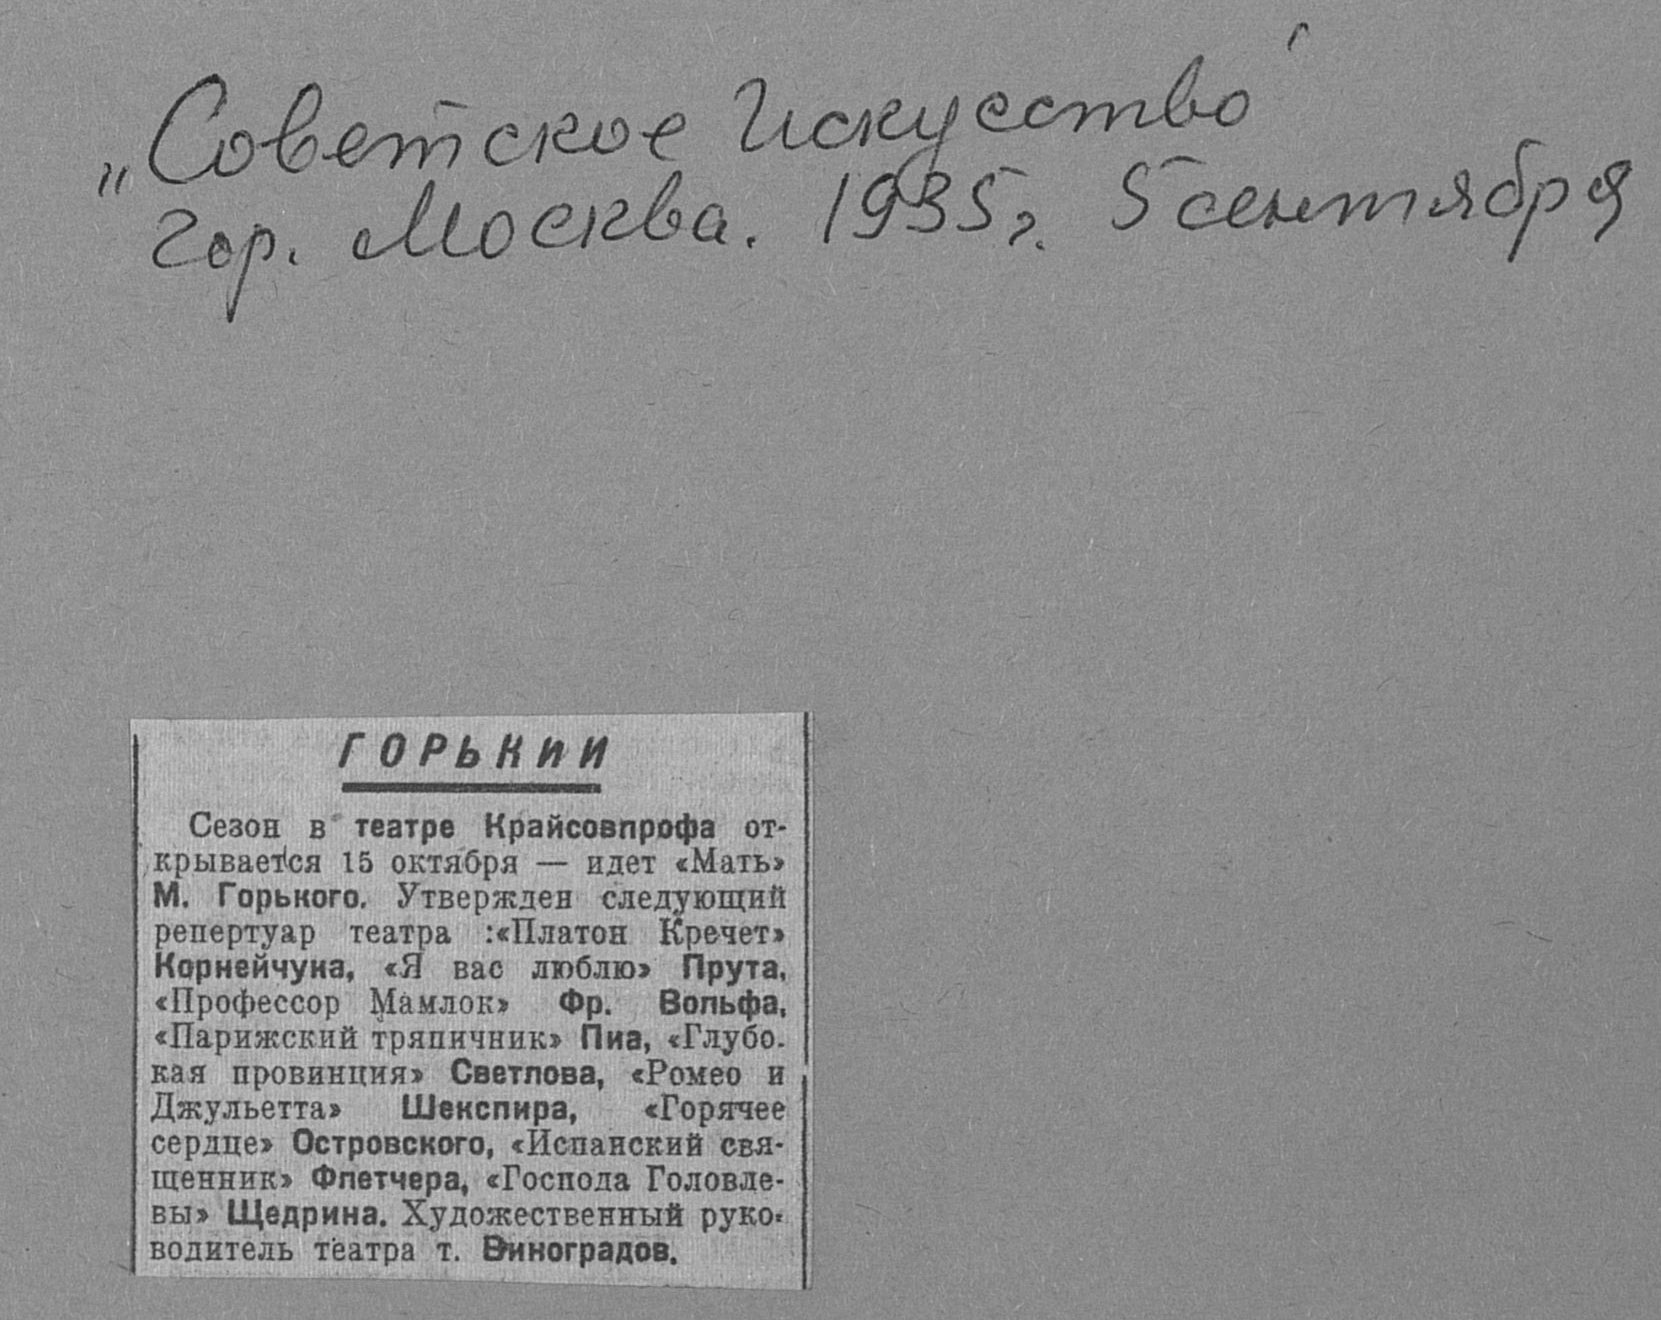 „Советское Искусство"
гор. Москва. 1935 г. 5 сентября
ГОРЬКИЙ
Сезон в театре Крайсовпрофа от-
крывается 15 октября — идет «Мать»
М. Горького. Утвержден следующий
репертуар театра :«Платон Кречет»
Корнейчука, «Я вас люблю» Прута,
«Профессор Мамлок» Фр. Вольфа,
«Парижский тряпичник» Пиа, «Глубо-
кая провинция» Светлова, «Ромео и
Джульетта» Шекспира, «Горячее
сердце» Островского, «Испанский свя-
щенник» Флетчера, «Господа Головле-
вы» Щедрина. Художественный руко-
водитель театра т. Виноградов.